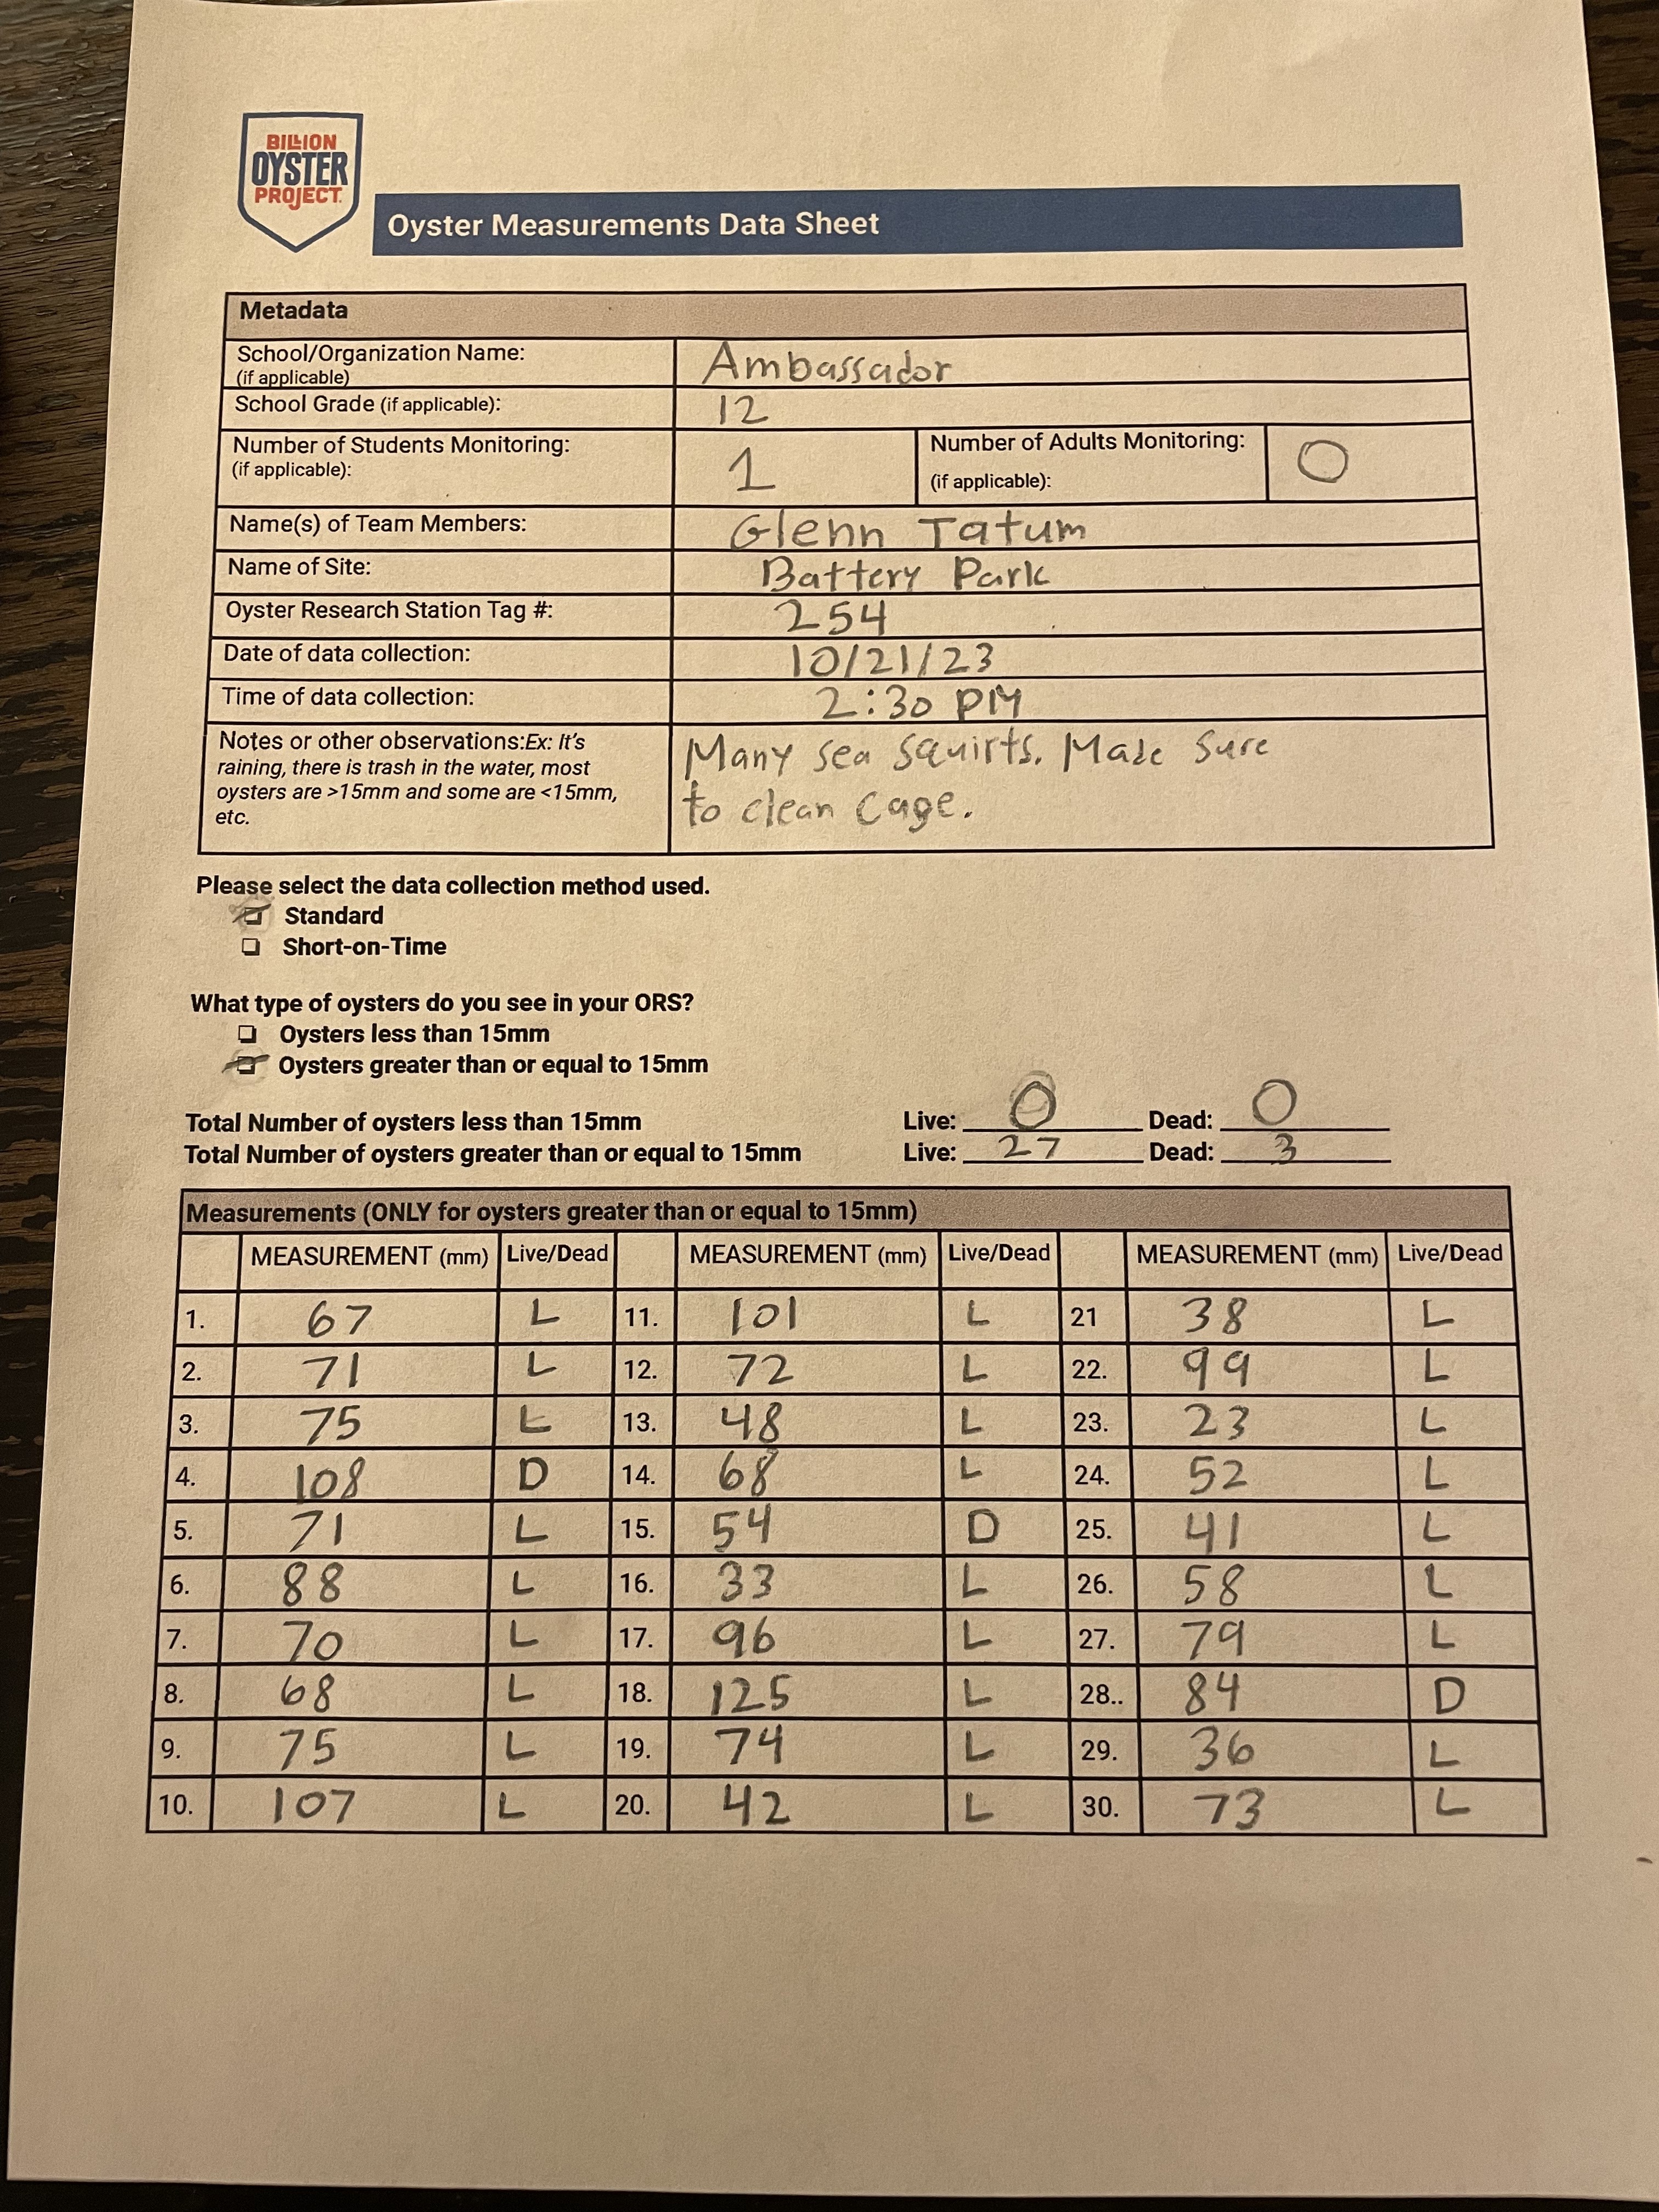 BILLION
OYSTER
PROJECT
Oyster Measurements Data Sheet
Metadata
School/Organization Name:
(if applicable)
Ambassador
School Grade (if applicable):
12
Number of Students Monitoring:
(if applicable):
1
Number of Adults Monitoring:
(if applicable):
0
Name(s) of Team Members:
Glenn Tatum
Name of Site:
Battery Park
Oyster Research Station Tag #:
254
Date of data collection:
10/21/23
Time of data collection:
2:30 PM
Notes or other observations:Ex: It's
raining, there is trash in the water, most
oysters are >15mm and some are <15mm,
etc.
Many sea squirts. Made sure
to clean cage.
Please select the data collection method used.
Standard
Short-on-Time
What type of oysters do you see in your ORS?
Oysters less than 15mm
Oysters greater than or equal to 15mm
Total Number of oysters less than 15mm Live: 0 Dead: 0
Total Number of oysters greater than or equal to 15mm Live: 27 Dead: 3
Measurements (ONLY for oysters greater than or equal to 15mm)
MEASUREMENT (mm) Live/Dead MEASUREMENT (mm) Live/Dead MEASUREMENT (mm) Live/Dead
1. 67 L 11. 101 L 21 38 L
2. 71 L 12. 72 L 22. 99 L
3. 75 L 13. 48 L 23. 23 L
4. 108 D 14. 68 L 24. 52 L
5. 71 L 15. 54 D 25. 41 L
6. 88 L 16. 33 L 26. 58 L
7. 70 L 17. 96 L 27. 79 L
8. 68 L 18. 125 L 28.. 84 D
9. 75 L 19. 74 L 29. 36 L
10. 107 L 20. 42 L 30. 73 L